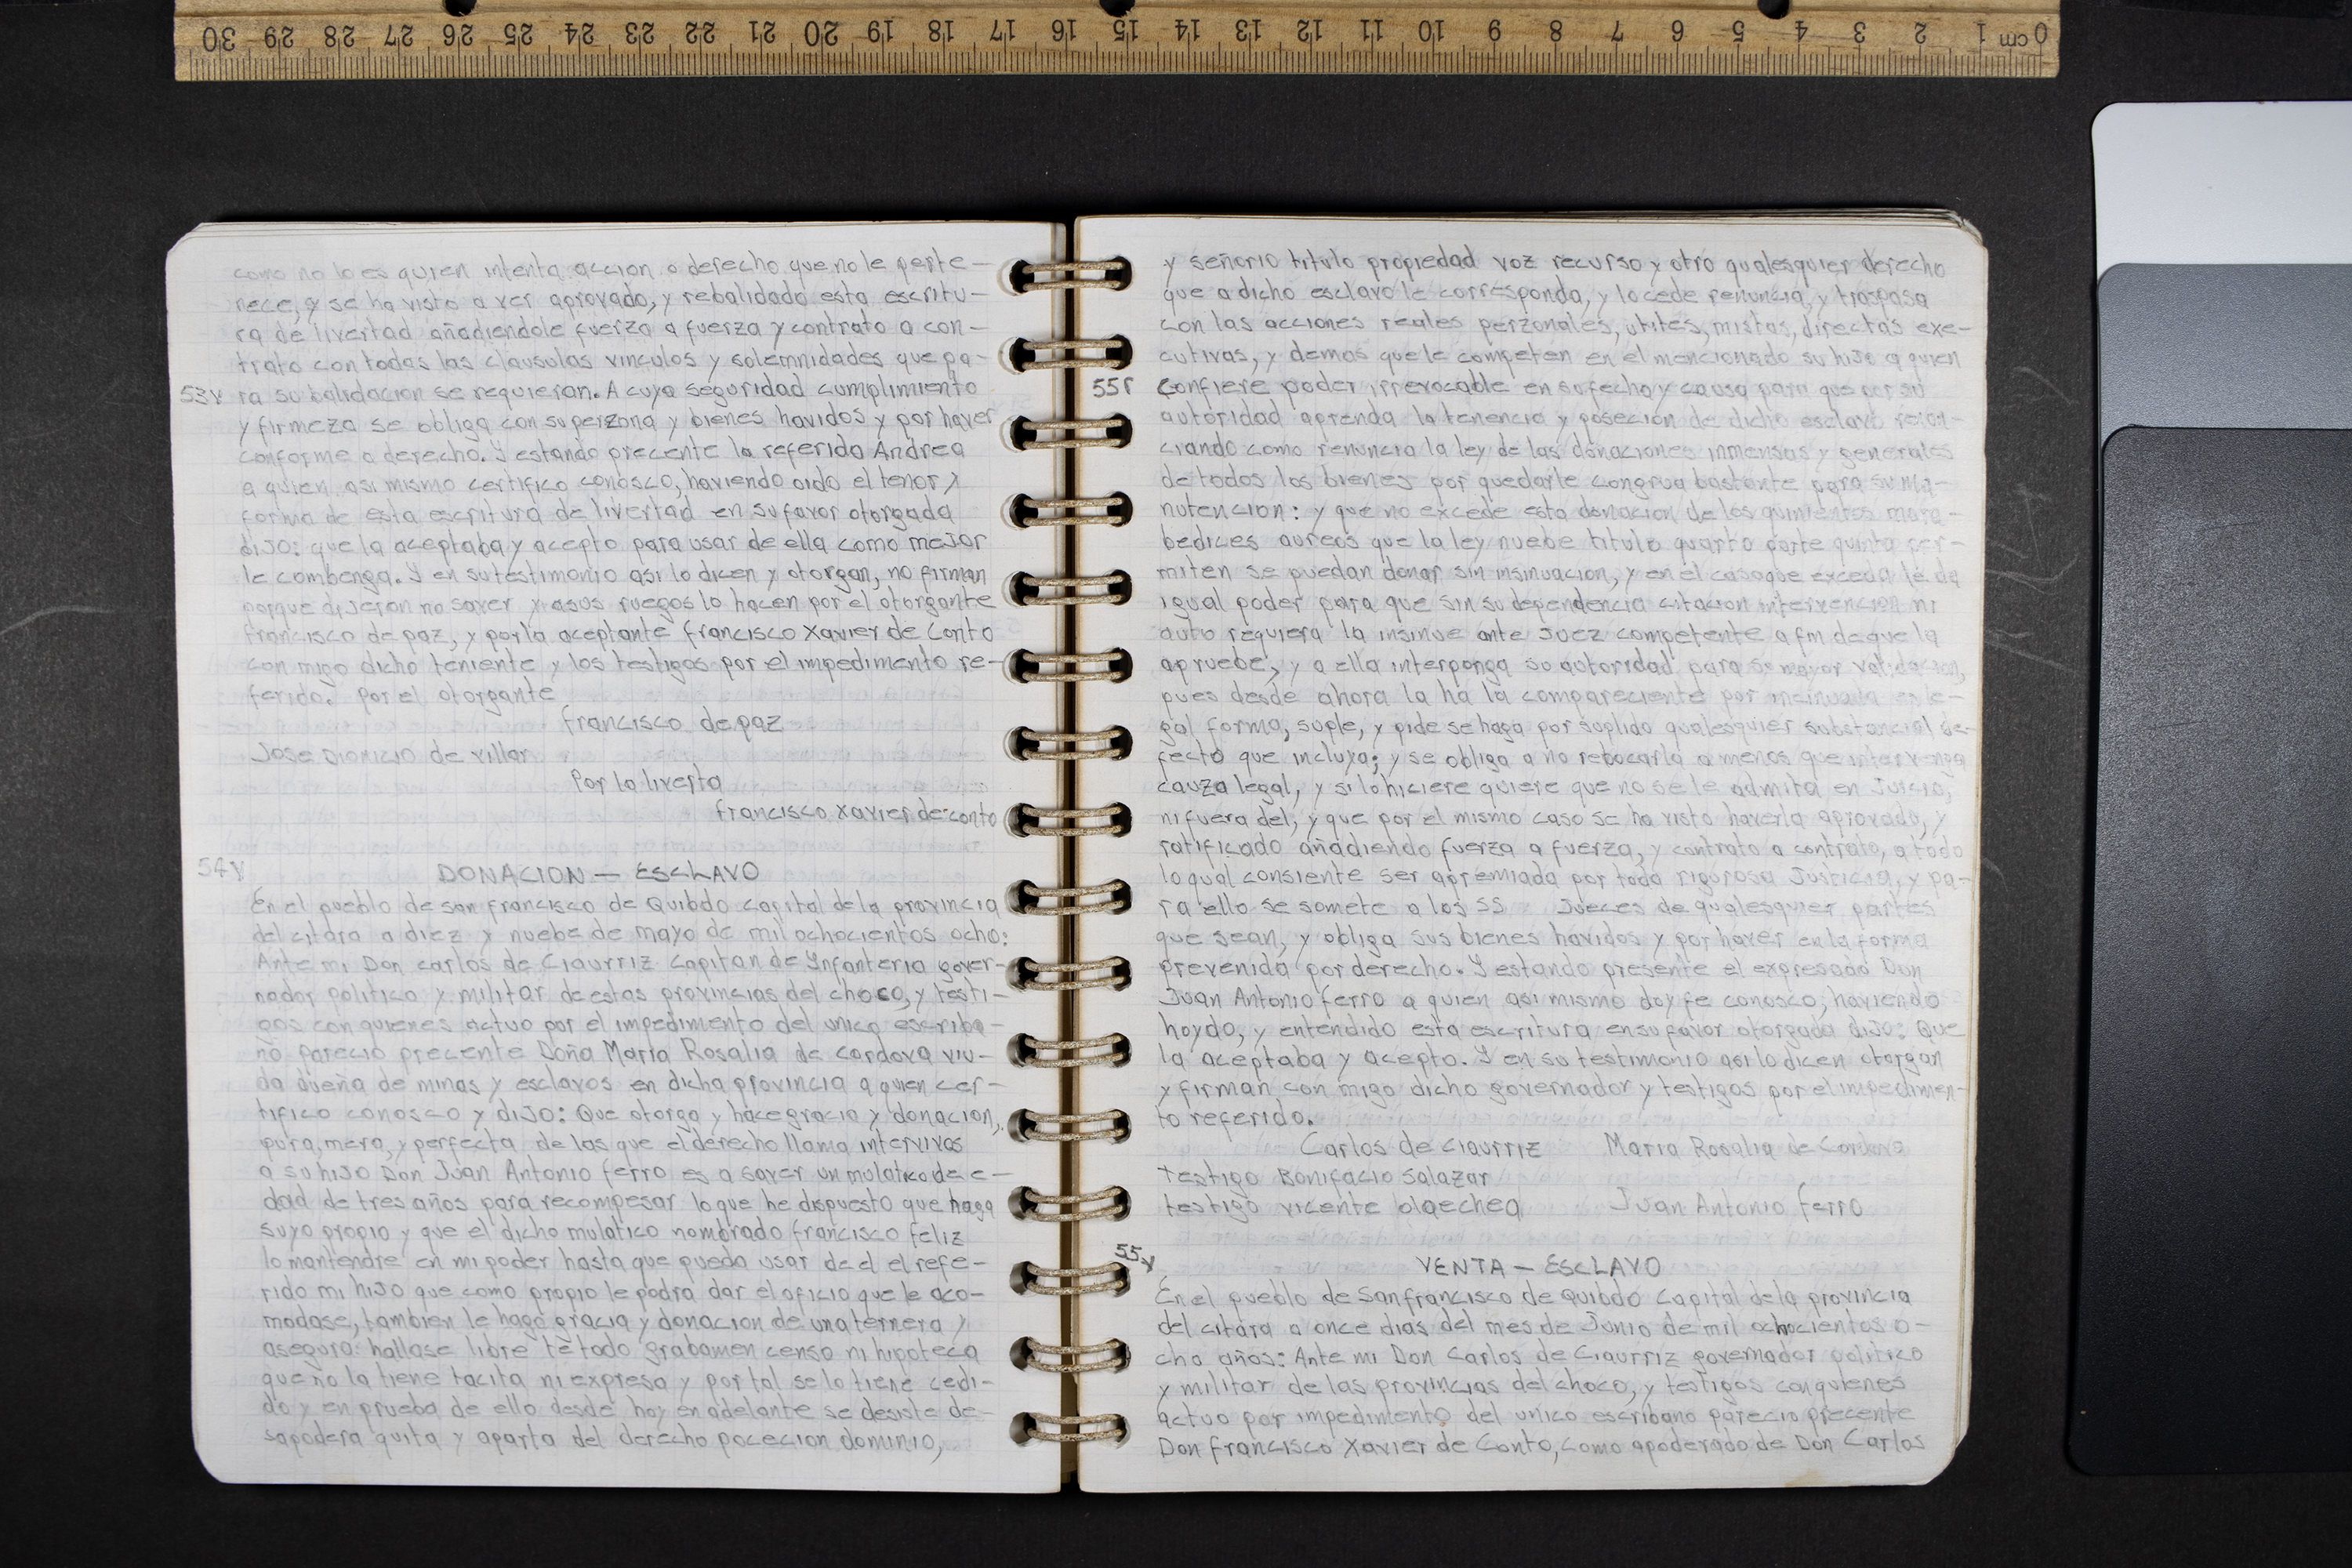 0 cm 1 2 3 4 5 6 7 8 9 10 11 12 13 14 15 16 17 18 19 20 21 22 23 24 25 26 27 28 29 30
como no lo es quien intenta accion o derecho que no le perte-
nece, y se ha visto a ver aprovado, y rebalidado esta escritu-
ra de livertad añadiendole fuerza a fuerza y contrato a con-
trato con todas las clausulas vinculos y solemnidades que pa-
53v ra su balidacion se requieran. A cuya seguridad cumplimiento
y firmeza se obliga con su perzona y bienes havidos y por haver
conforme a derecho. Y estando precente la referida Andrea
a quien asi mismo certifico conosco, haviendo oido el tenor y
forma de esta escritura de livertad en su favor otorgada
dijo: que la aceptaba y acepto para usar de ella como mejor
le combenga. Y en su testimonio asi lo dicen y otorgan, no firman
porque dijeron no saver y a sus ruegos lo hacen por el otorgante
francisco de paz, y por la aceptante francisco Xavier de Conto
con migo dicho teniente y los testigos por el impedimento re-
ferido. Por el otorgante
francisco de paz
Jose Dionicio de Villar
Por la liverta
francisco Xavier de conto
54v DONACION - ESCLAVO
En el pueblo de san francisco de Quibdo capital de la provincia
del citara a diez y nuebe de mayo de mil ochocientos ocho:
Ante mi Don carlos de Ciaurriz Capitan de Ynfanteria gover-
nador politico y militar de estas provincias del choco, y testi-
gos con quienes actuo por el impedimento del unico escriba-
no parecio precente Doña Maria Rosalia de cordova viu-
da dueña de minas y esclavos en dicha provincia a quien cer-
tifico conosco y dijo: Que otorga y hace gracia y donacion,
pura, mera, y perfecta de las que el derecho llama intervivos
a su hijo Don Juan Antonio ferro es a saver un mulatico de e-
dad de tres años para recompesar lo que he dispuesto que haga
suyo propio y que el dicho mulatico nombrado francisco feliz
lo mantendre en mi poder hasta que pueda usar de el el refe-
rido mi hijo que como propio le podra dar el oficio que le aco-
modase, tambien le hago gracia y donacion de una ternera y
asegura hallase libre te todo grabamen censo ni hipoteca
que no la tiene tacita ni expresa y por tal se lo tiene cedi-
do y en prueba de ello desde hoy en adelante se desiste de-
sapodera quita y aparta del derecho pocecion dominio,
y señorio titulo propiedad voz recurso y otro qualesquier derecho
que a dicho esclavo le corresponda, y lo cede renuncia, y traspasa
con las acciones reales perzonales, utites, mistas, directas exe-
cutivas, y demas que le competen en el mencionado su hijo a quien
55r confiere poder irrevocable en su fecho y causa para que por su
autoridad aprenda la tenencia y posecion de dicho esclavo renun-
ciando como renuncia la ley de las donaciones inmensas y generales
de todos los bienes por quedarle congrua bastante para su ma-
nutencion: y que no excede esta donacion de los quinientos mara-
bedices aureos que la ley nuebe titulo quarto parte quinta per-
miten se puedan donar sin insinuacion, y en el caso que exceda le da
igual poder para que sin su dependencia citacion intervencion ni
auto requiera la insinue ante Juez competente a fin de que la
apruebe, y a ella interponga su autoridad para su mayor validacion,
pues desde ahora la ha la compareciente por incinuada en le-
gal forma, suple, y pide se haga por suplido qualesquier substancial de-
fecto que incluya; y se obliga a no rebocarla a menos que intervenga
cauza legal, y si lo hiciere quiere que no se le admita en Juicio,
ni fuera del, y que por el mismo caso se ha visto haverla aprovado, y
ratificado añadiendo fuerza a fuerza, y contrato a contrato, a todo
lo qual consiente ser apremiada por toda rigurosa Justicia, y pa-
ra ello se somete a los SS Jueces de qualesquier partes
que sean, y obliga sus bienes havidos y por haver en la forma
prevenida por derecho. Y estando presente el expresado Don
Juan Antonio ferro a quien asi mismo doy fe conosco, haviendo
hoydo, y entendido esta escritura en su favor otorgada dijo: Que
la aceptaba y acepto. Y en su testimonio asi lo dicen otorgan
y firman con migo dicho governador y testigos por el impedimen-
to referido.
Carlos de Ciaurriz Maria Rosalia de Cordova
Testigo Bonifacio Salazar
testigo vicente olaechea Juan Antonio ferro
55v VENTA - ESCLAVO
En el pueblo de San francisco de Quibdo Capital de la provincia
del citara a once dias del mes de Junio de mil ochocientos o-
cho años: Ante mi Don Carlos de Ciaurriz governador politico
y militar de las provincias del choco, y testigos con quienes
actuo por impedimento del unico escribano parecio precente
Don francisco Xavier de Conto, como apoderado de Don Carlos